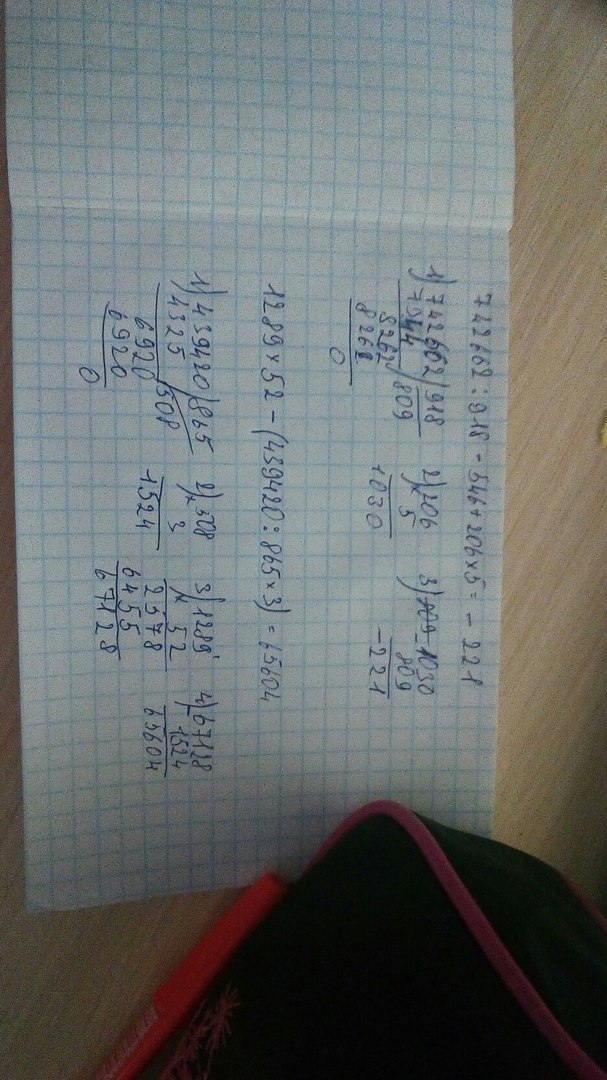 742662 : 918 - 544 + 206 × 5 = - 221
1) 742662 | 918 2) 206 3) 809 - 1030
7344 | 809 5 809
8262 1030 - 221
8262
0
1289 × 52 - (439420 : 865 × 3) = 65604
1) 439420 | 865 2) × 508 3) × 1289 4) - 67128
4325 | 508 3 52 1524
6920 1524 2578 65604
6920 6455
0 67128